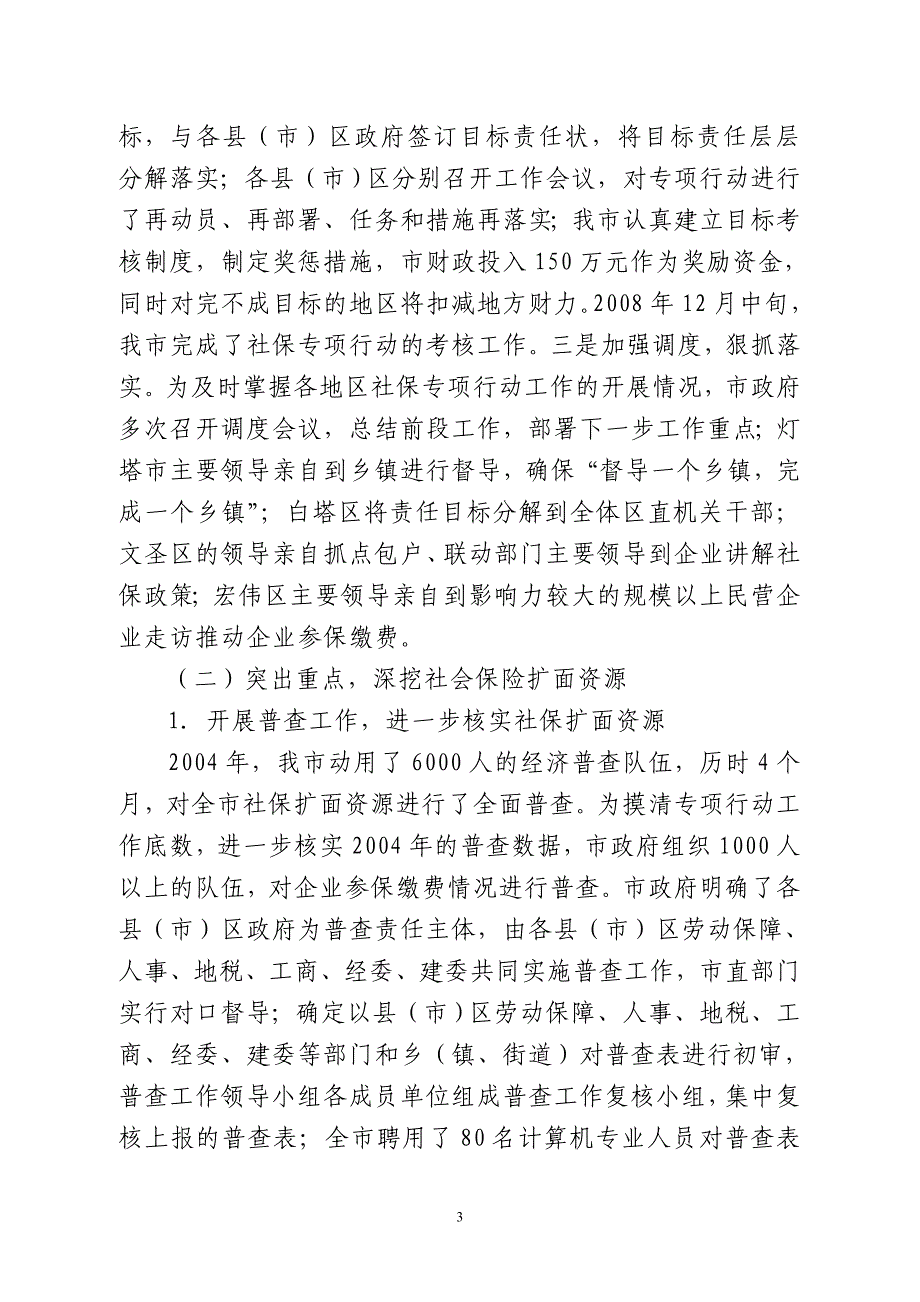 标，与各县（市）区政府签订目标责任状，将目标责任层层
分解落实；各县（市）区分别召开工作会议，对专项行动进行
了再动员、再部署、任务和措施再落实；我市认真建立目标考
核制度，制定奖惩措施，市财政投入 150 万元作为奖励资金，
同时对完不成目标的地区将扣减地方财力。2008 年 12 月中旬，
我市完成了社保专项行动的考核工作。三是加强调度，狠抓落
实。为及时掌握各地区社保专项行动工作的开展情况，市政府
多次召开调度会议，总结前段工作，部署下一步工作重点；灯
塔市主要领导亲自到乡镇进行督导，确保“督导一个乡镇，完
成一个乡镇”；白塔区将责任目标分解到全体区直机关干部；
文圣区的领导亲自抓点包户、联动部门主要领导到企业讲解社
保政策；宏伟区主要领导亲自到影响力较大的规模以上民营企
业走访推动企业参保缴费。
（二）突出重点，深挖社会保险扩面资源
1．开展普查工作，进一步核实社保扩面资源
2004 年，我市动用了 6000 人的经济普查队伍，历时 4 个
月，对全市社保扩面资源进行了全面普查。为摸清专项行动工
作底数，进一步核实 2004 年的普查数据，市政府组织 1000 人
以上的队伍，对企业参保缴费情况进行普查。市政府明确了各
县（市）区政府为普查责任主体，由各县（市）区劳动保障、
人事、地税、工商、经委、建委共同实施普查工作，市直部门
实行对口督导；确定以县（市）区劳动保障、人事、地税、工
商、经委、建委等部门和乡（镇、街道）对普查表进行初审，
普查工作领导小组各成员单位组成普查工作复核小组，集中复
核上报的普查表；全市聘用了 80 名计算机专业人员对普查表
3